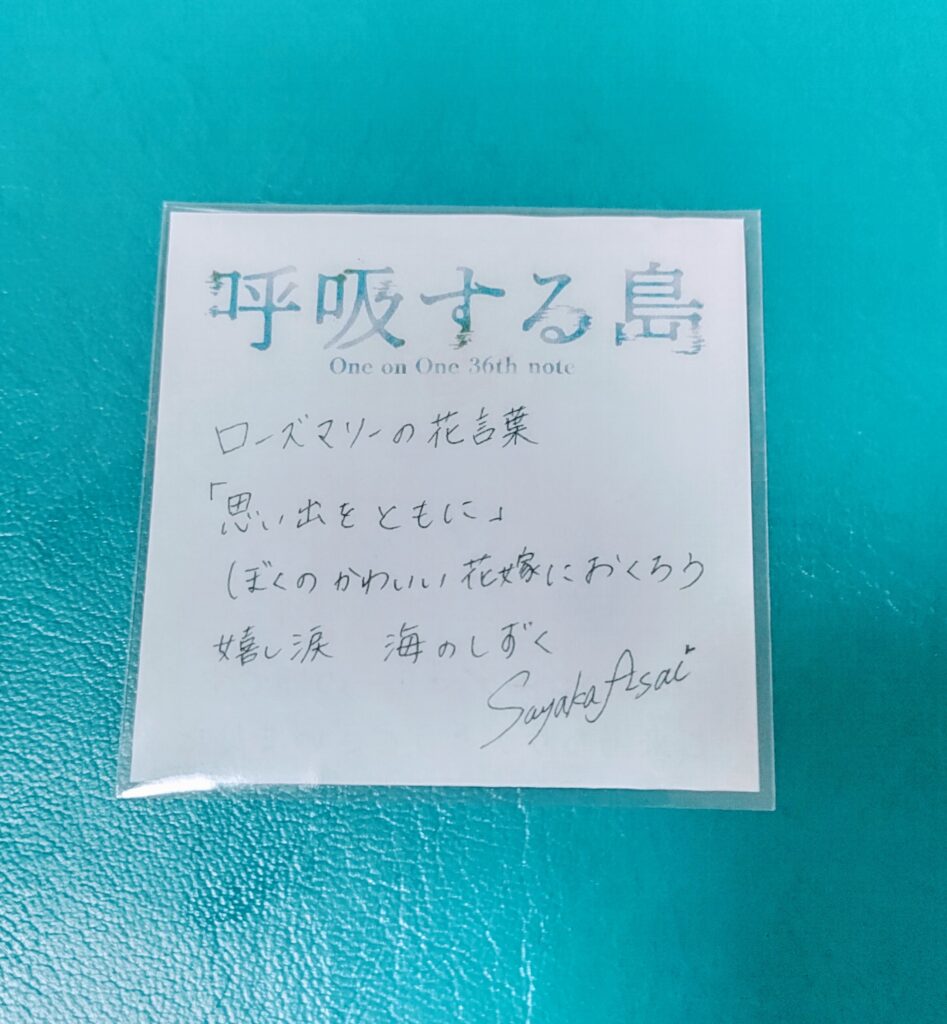 呼吸する島
One on One 36th note
ローズマリーの花言葉
「思い出をともに」
ぼくのかわいい花嫁におくろう
嬉し涙　海のしずく
Sayaka Asai